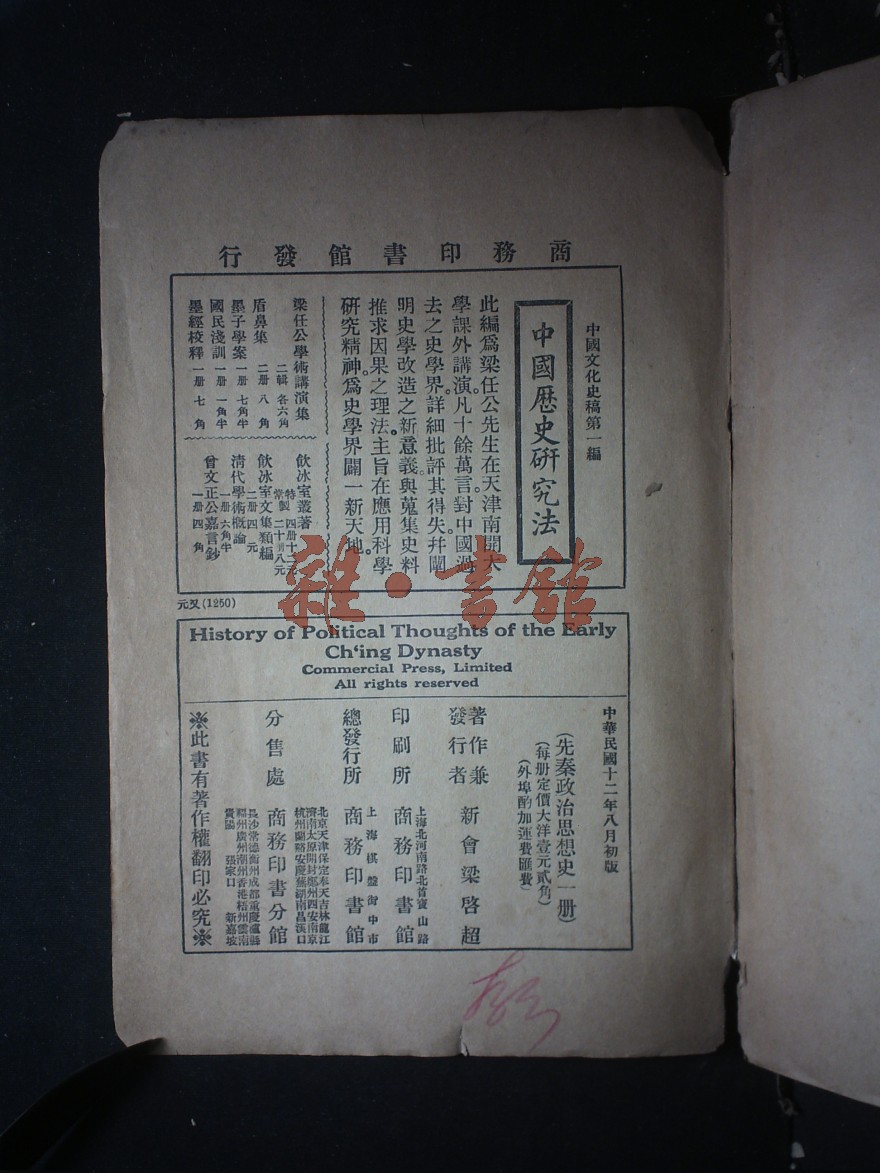 商務印書館發行
中國文化史稿第一編
中國歷史研究法
此編爲梁任公先生在天津南開大
學課外講演。凡十餘萬言。對中國過
去之史學界。詳細批評其得失。幷闡
明史學改造之新意義與蒐集史料
推求因果之理法。主旨在應用科學
研究精神。爲史學界闢一新天地。
梁任公學術講演集 二輯 各六角
盾鼻集 二册 八角
墨子學案 一册 七角半
國民淺訓 一册 一角半
墨經校釋 一册 七角
飲冰室叢著 特製 四册十二元 常製 二十册八元
飲冰室文集類編 二册 四元
清代學術槪論 一册 六角半
曾文正公嘉言鈔 一册 四角
元又(1250)
雜·書館
History of Political Thoughts of the Early
Ch'ing Dynasty
Commercial Press, Limited
All rights reserved
中華民國十二年八月初版
(先秦政治思想史一册)
(每册定價大洋壹元貳角)
(外埠酌加運費匯費)
著作兼發行者 新會梁啓超
印刷所 上海北河南路北首寶山路 商務印書館
總發行所 上海棋盤街中市 商務印書館
分售處 商務印書分館
北京天津保定奉天吉林龍江
濟南太原開封鄭州西安南京
杭州蘭谿安慶蕪湖南昌漢口
長沙常德衡州成都重慶瀘縣
福州廣州潮州香港梧州雲南
貴陽 張家口 新嘉坡
※此書有著作權翻印必究※